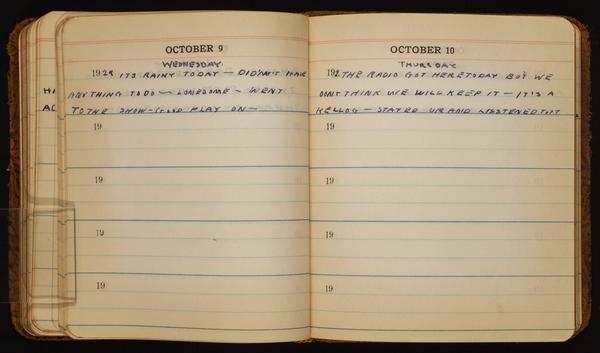 OCTOBER 9
WEDNESDAY
1929 ITS RAINY TODAY — DIDN'T HAVE
ANYTHING TO DO — LONESOME — WENT
TO THE SHOW — GOOD PLAY ON —
19
19
19
19
OCTOBER 10
THURSDAY
192 THE RADIO GOT HERE TODAY BUT WE
DONT THINK WE WILL KEEP IT — IT'S A
KELLOG — STAYED UP AND LISSTENED TO IT
19
19
19
19